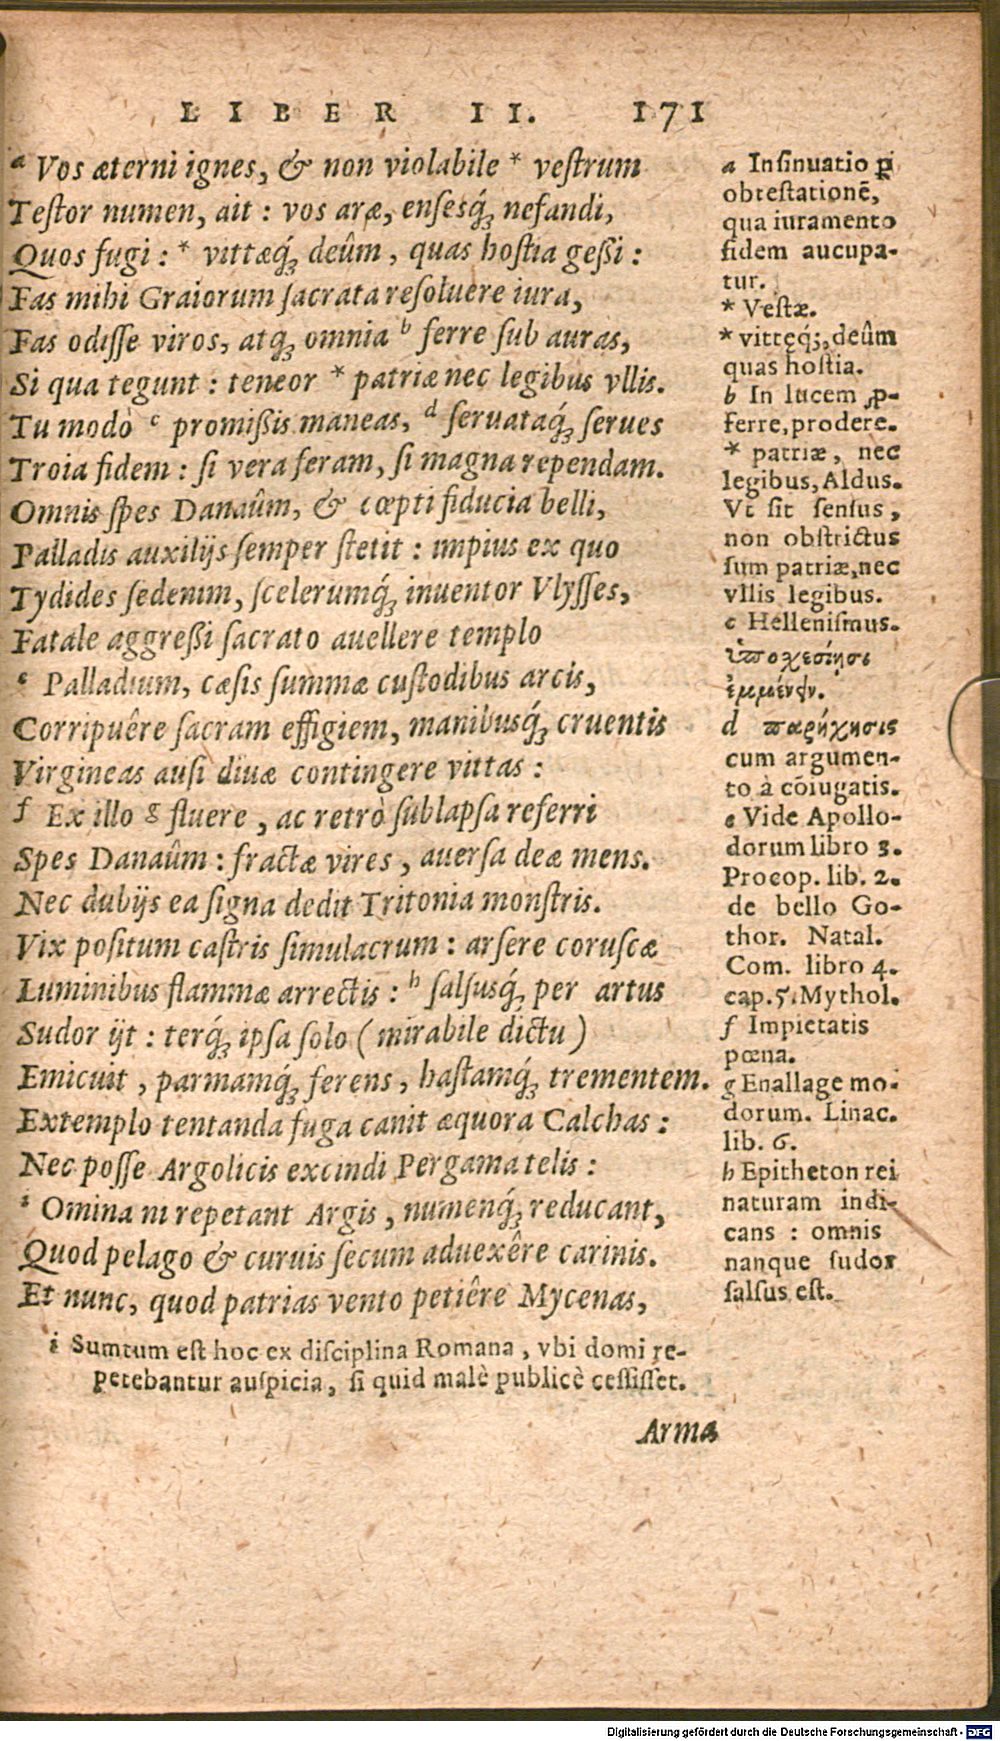 LIBER II. 171
a Vos æterni ignes, & non violabile * vestrum
Testor numen, ait : vos aræ, ensesq́ꝫ nefandi,
Quos fugi : * vittæq́ꝫ deûm, quas hostia geßi :
Fas mihi Graiorum sacrata resoluere iura,
Fas odisse viros, atqꝫ omnia b ferre sub auras,
Si qua tegunt : teneor * patriæ nec legibus vllis.
Tu modò c promißis maneas, d seruataq́ꝫ serues
Troia fidem : si vera feram, si magna rependam.
Omnis spes Danaûm, & cœpti fiducia belli,
Palladis auxilijs semper stetit : impius ex quo
Tydides sedenim, scelerumq́ꝫ inuentor Vlysses,
Fatale aggreßi sacrato auellere templo
e Palladium, cæsis summæ custodibus arcis,
Corripuêre sacram effigiem, manibusq́ꝫ cruentis
Virgineas ausi diuæ contingere vittas :
f Ex illo g fluere, ac retrò sublapsa referri
Spes Danaûm : fractæ vires, auersa deæ mens.
Nec dubijs ea signa dedit Tritonia monstris.
Vix positum castris simulacrum : arsere coruscæ
Luminibus flammæ arrectis : h salsusq́ꝫ per artus
Sudor ijt : terq́ꝫ ipsa solo (mirabile dictu)
Emicuit, parmamq́ꝫ ferens, hastamq́ꝫ trementem.
Extemplo tentanda fuga canit æquora Calchas :
Nec posse Argolicis excindi Pergama telis :
i Omina ni repetant Argis, numenq́ꝫ reducant,
Quod pelago & curuis secum aduexêre carinis.
Et nunc, quod patrias vento petiêre Mycenas,
i Sumtum est hoc ex disciplina Romana, vbi domi re-
petebantur auspicia, si quid malè publicè cessisset.
Arma
a Insinuatio ꝑ
obtestationē,
qua iuramento
fidem aucupa-
tur.
* Vestæ.
* vittęq́;, deûm
quas hostia.
b In lucem ꝓ-
ferre, prodere.
* patriæ, nec
legibus, Aldus.
Vt sit sensus,
non obstrictus
sum patriæ, nec
vllis legibus.
c Hellenismus.
ὑποχεσίησι
ἐμμένειν.
d παρήχησις
cum argumen-
to à cōiugatis.
e Vide Apollo-
dorum libro 3.
Procop. lib. 2.
de bello Go-
thor. Natal.
Com. libro 4.
cap. 5. Mythol.
f Impietatis
pœna.
g Enallage mo-
dorum. Linac.
lib. 6.
h Epitheton rei
naturam indi-
cans : omnis
nanque sudor
salsus est.
Digitalisierung gefördert durch die Deutsche Forschungsgemeinschaft - DFG